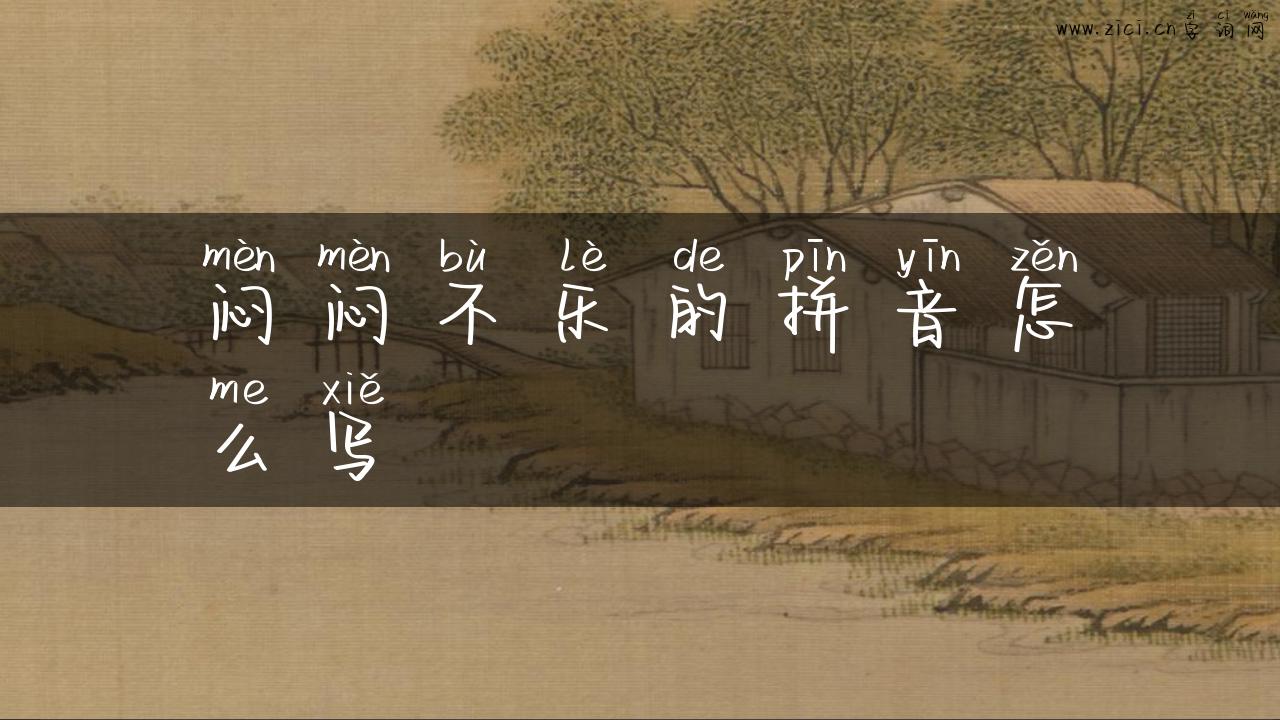 zì cí wǎng
www.zici.cn 字词网
mèn mèn bù lè de pīn yīn zěn
闷闷不乐的拼音怎
me xiě
么写